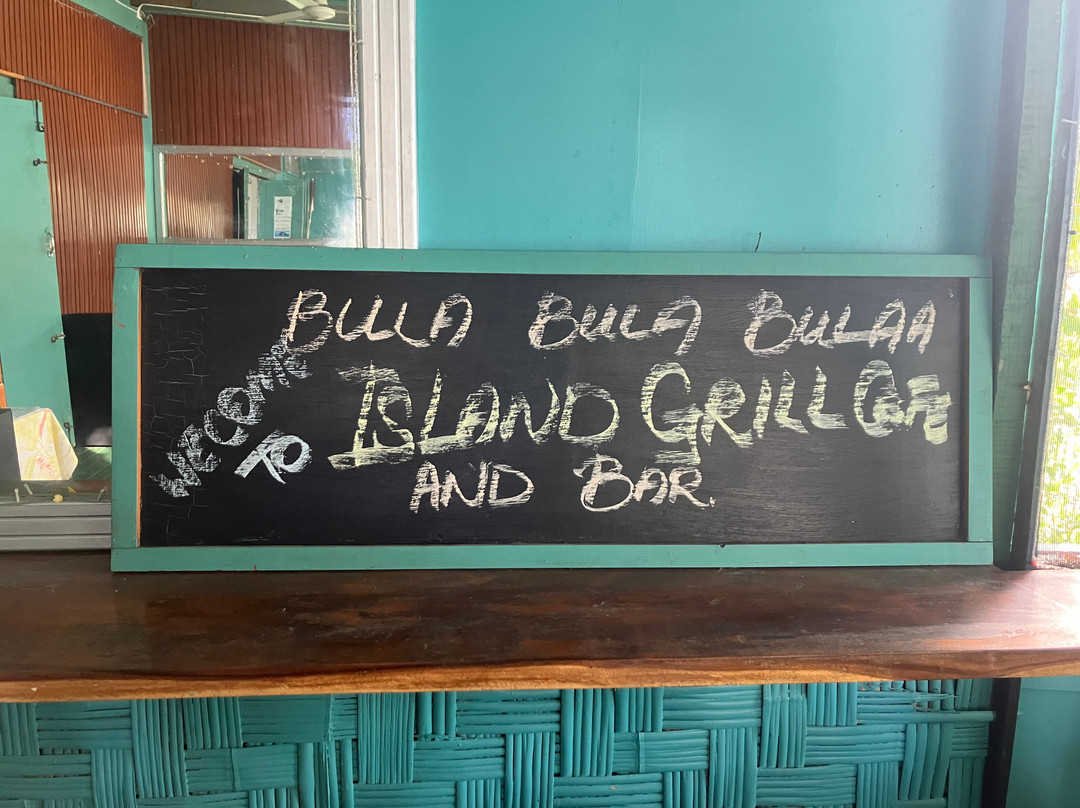 BULA BULA BULAA
WELCOME
TO
ISLAND GRILL CAFE
AND BAR.